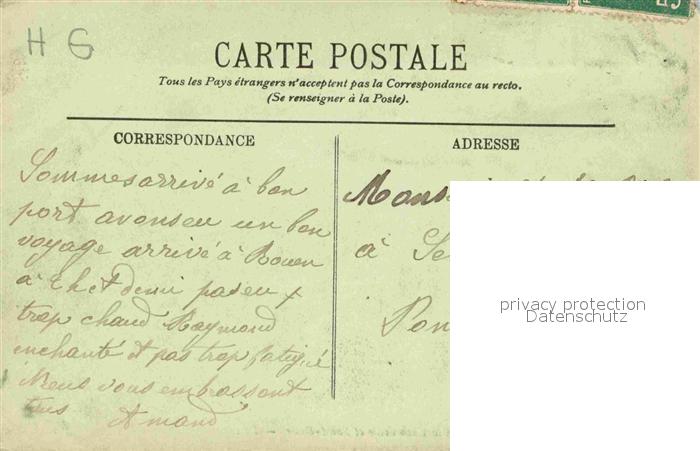 H G
CARTE POSTALE
Tous les Pays étrangers n'acceptent pas la Correspondance au recto.
(Se renseigner à la Poste).
CORRESPONDANCE
ADRESSE
Sommes arrivé à bon
port avons eu un bon
voyage arrivé à Rouen
à et demi pas eu
trop chaud Raymond
enchanté et pas trop fatigué
Nous vous embrassont
tous Armand
à
privacy protection
Datenschutz